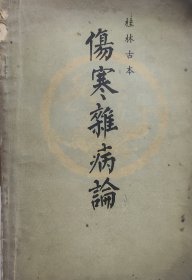 桂林古本
傷寒雜病論